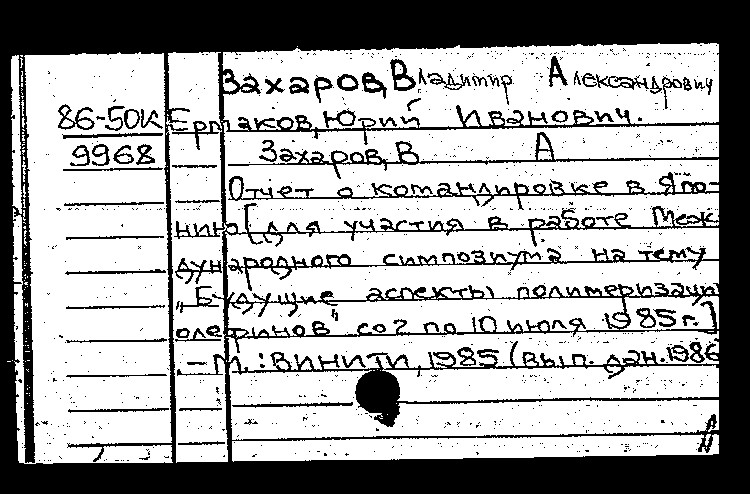 Захаров, Владимир Александрович
86-50к Ермаков, Юрий Иванович.
9968 Захаров, В А
Отчет о командировке в Япо-
нию [для участия в работе Меж
дународного симпозиума на тему
„Будущие аспекты полимеризации
олефинов" со 2 по 10 июля 1985 г.]
.-М.: ВИНИТИ, 1985 (вып. дан. 1986